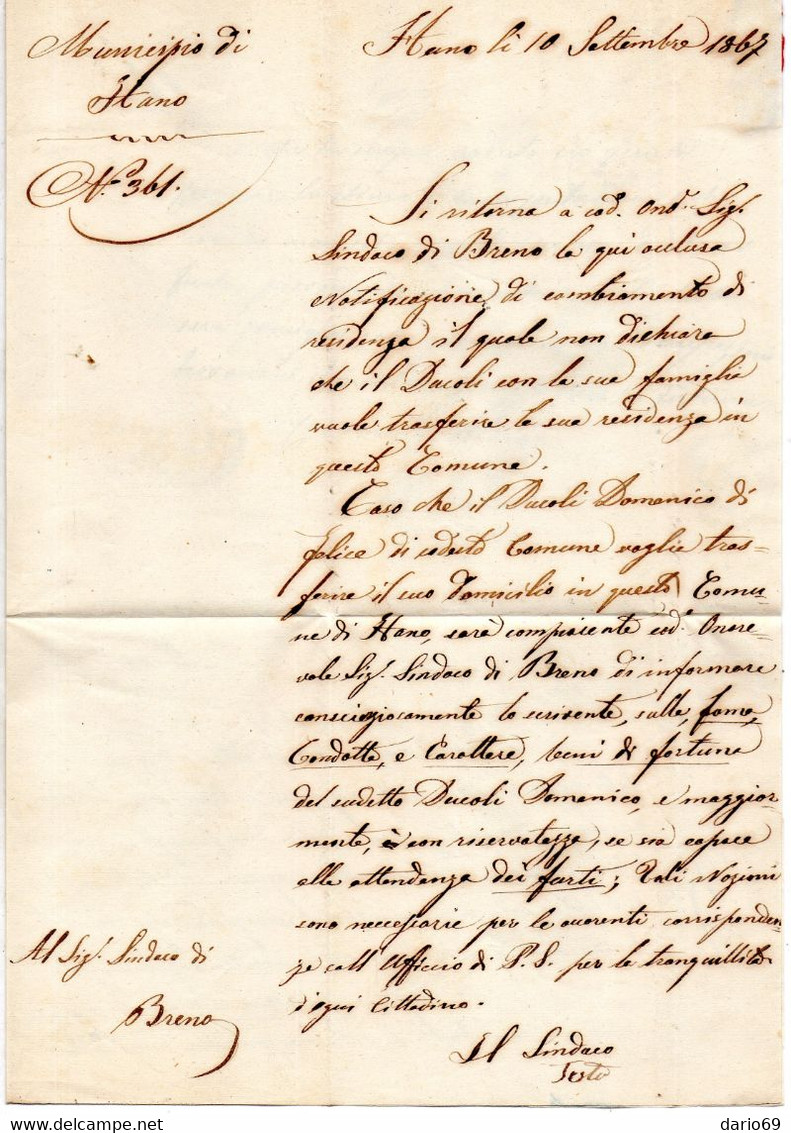 Municipio di
Hano
Nº 361.
Hano li 10 Settembre 1867
Si ritorna a cod. Onoᵈ. Sigʳ.
Sindaco di Breno la qui acclusa
Notificazione di cambiamento di
residenza il quale non dichiara
che il Ducoli con la sua famiglia
vuole trasferire la sua residenza in
questo Comune.
Caso che il Ducoli Domenico di
felice di codesto Comune voglia tras=
ferire il suo domicilio in questo Comu-
ne di Hano, sarà compiacente codº. Onore-
vole Sigʳ. Sindaco di Breno di informare
conscienziosamente lo scrivente, sulla, fama,
Condotta, e Carattere, beni di fortuna
del sudetto Ducoli Domenico, e maggior-
mente, con riservatezza, se sia capace
alla attendenza dei furti; Tali Nozioni
sono neccessarie per le occorenti corrisponden-
ze coll' Ufficio di P. S. per la tranquillità
d'ogni Cittadino.
Il Sindaco
Al Sigʳ. Sindaco di
Breno
dario69